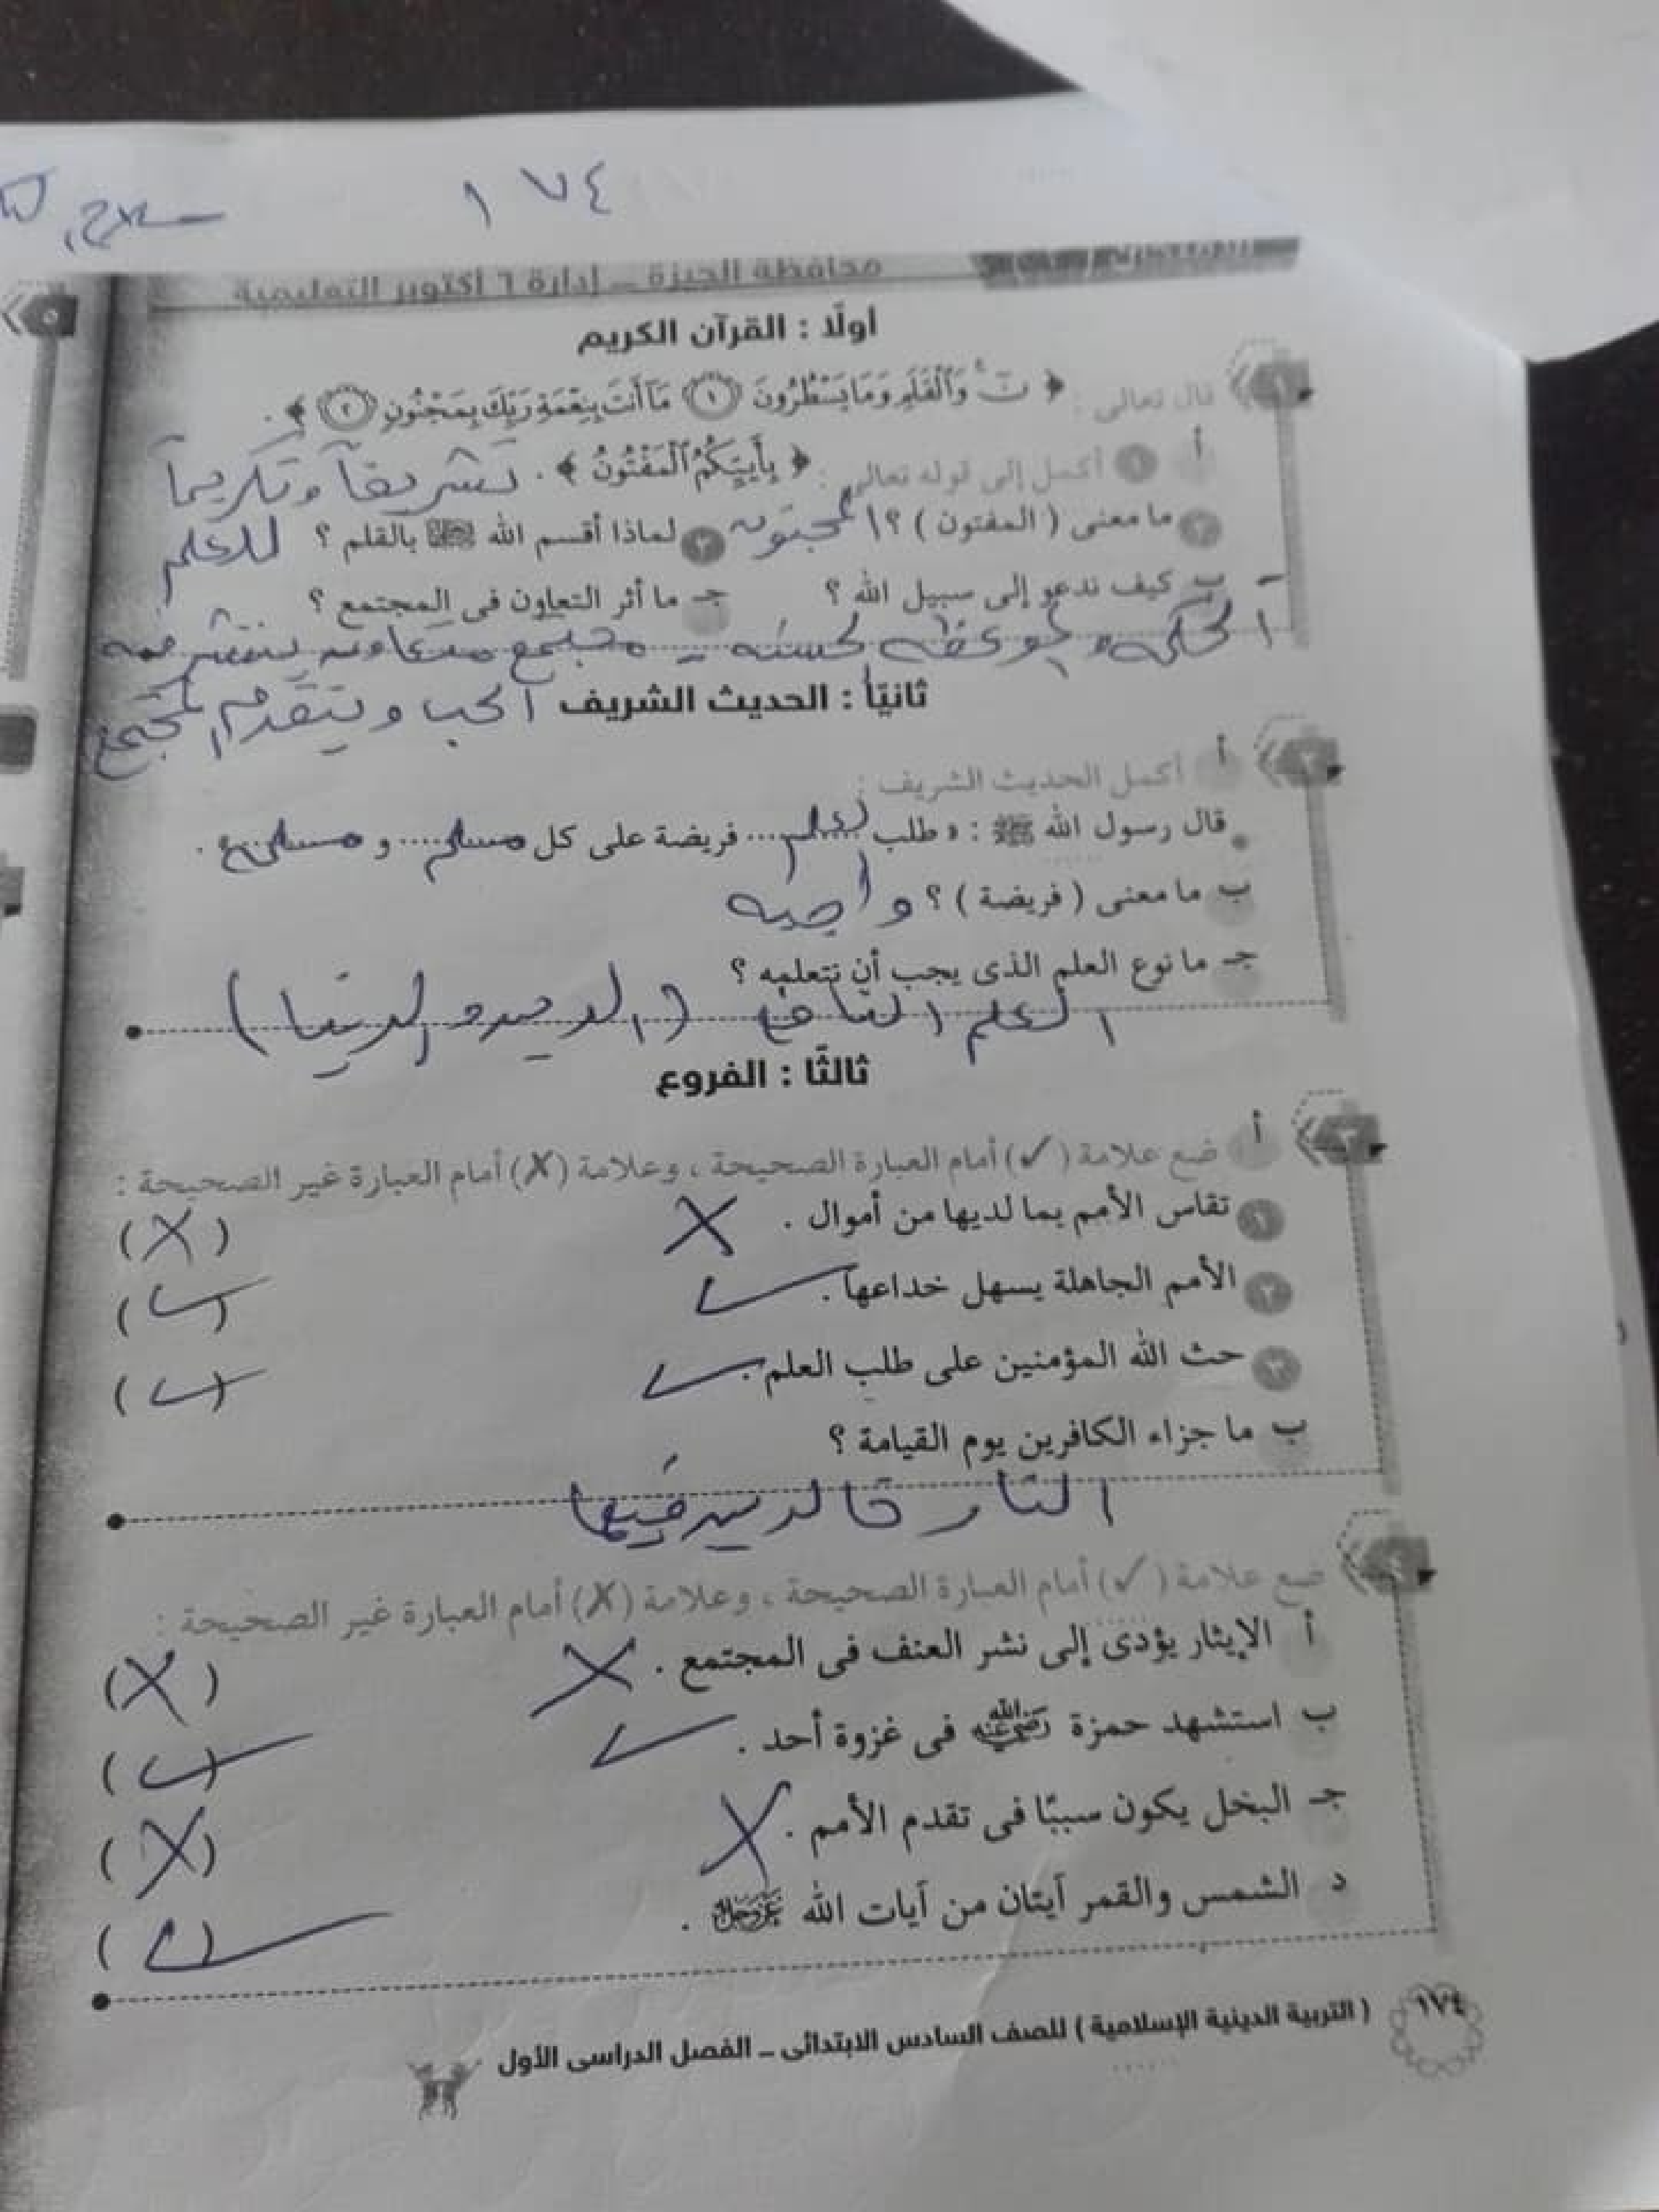 ١٧٤
محافظة الجيزة – إدارة ٦ أكتوبر التعليمية
أولًا : القرآن الكريم
١ قال تعالى : ﴿ نٓ ۚ وَٱلْقَلَمِ وَمَا يَسْطُرُونَ (١) مَآ أَنتَ بِنِعْمَةِ رَبِّكَ بِمَجْنُونٍ (٢) ﴾ .
أ ١ أكمل إلى قوله تعالى : ﴿ بِأَييِّكُمُ ٱلْمَفْتُونُ ﴾ . تشريفاً وتكريماً
٢ ما معنى ( المفتون ) ؟ المجنون ٣ لماذا أقسم الله ﷻ بالقلم ؟ للعلم
ب كيف ندعو إلى سبيل الله ؟ جـ ما أثر التعاون فى المجتمع ؟
الحكمه والموعظه الحسنه – مجتمع متعاون ينتشر فيه
ثانيًا : الحديث الشريف الحب ويتقدم المجتمع
٢ أ أكمل الحديث الشريف :
قال رسول الله ﷺ : « طلب العلم فريضة على كل مسلم و مسلمة .
ب ما معنى ( فريضة ) ؟ واجبه
جـ ما نوع العلم الذى يجب أن نتعلمه ؟
العلم النافع ( الدين والدنيا )
ثالثًا : الفروع
٣ أ ضع علامة (✓) أمام العبارة الصحيحة ، وعلامة (✗) أمام العبارة غير الصحيحة :
١ تقاس الأمم بما لديها من أموال . ✗ (✗)
٢ الأمم الجاهلة يسهل خداعها . ✓ (✓)
٣ حث الله المؤمنين على طلب العلم . ✓ (✓)
ب ما جزاء الكافرين يوم القيامة ؟
النار خالدين فيها
٤ ضع علامة (✓) أمام العبارة الصحيحة ، وعلامة (✗) أمام العبارة غير الصحيحة :
أ الإيثار يؤدى إلى نشر العنف فى المجتمع . ✗ (✗)
ب استشهد حمزة رضي الله عنه فى غزوة أحد . ✓ (✓)
جـ البخل يكون سببًا فى تقدم الأمم . ✗ (✗)
د الشمس والقمر آيتان من آيات الله عز وجل . (✓)
١٧٤ ( التربية الدينية الإسلامية ) للصف السادس الابتدائى – الفصل الدراسى الأول